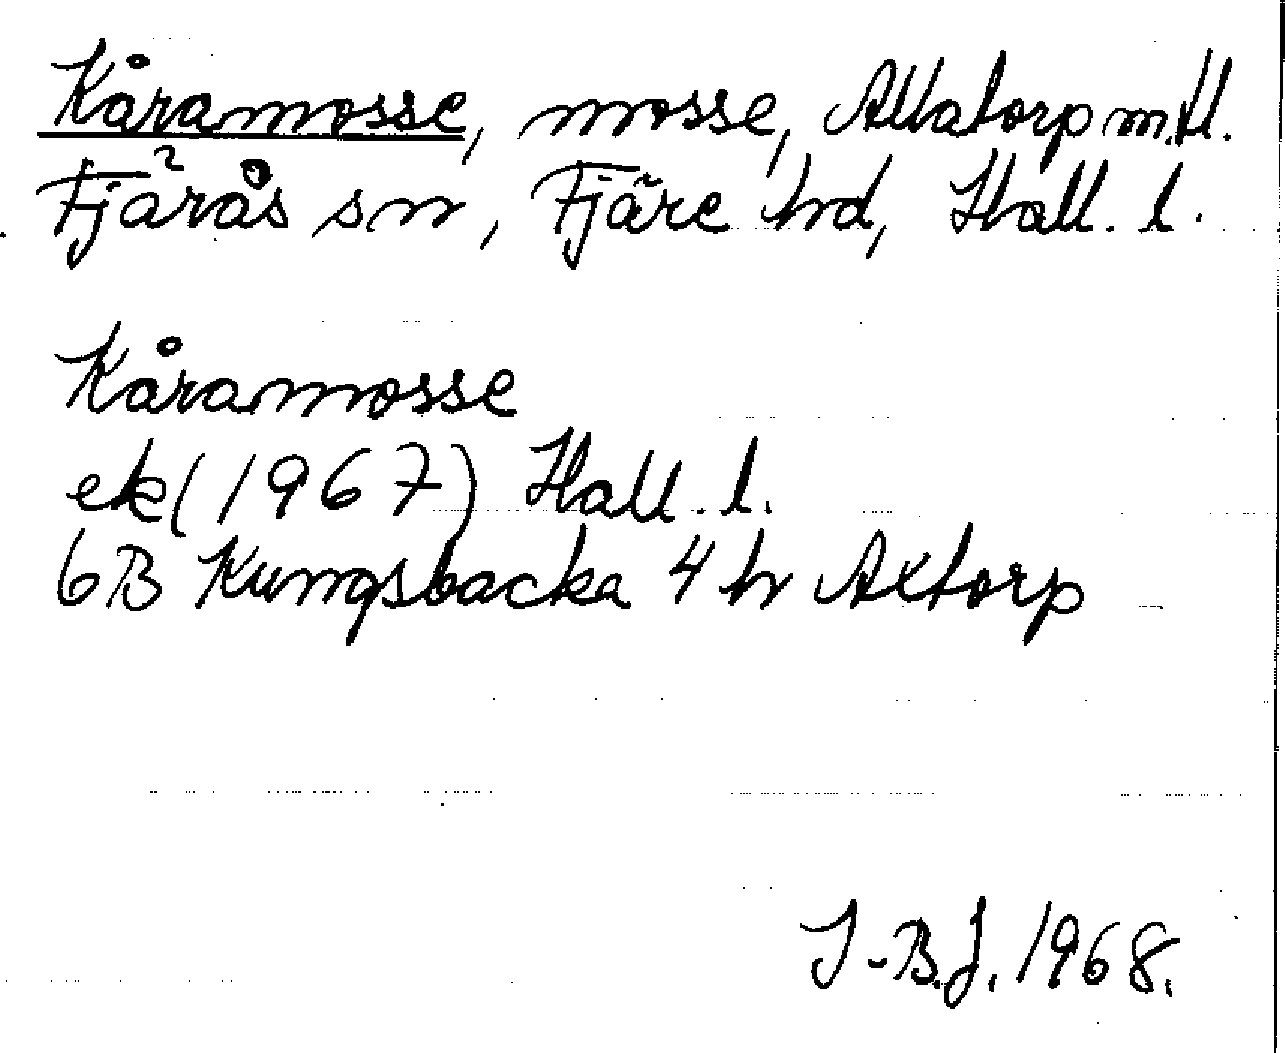 Kåramosse, mosse, Allatorp m.fl.
Fjärås sn, Fjäre hd, Hall. l.
Kåramosse
ek (1967) Hall. l.
6B Kungsbacka 4 h Axtorp
J-B.J. 1968.